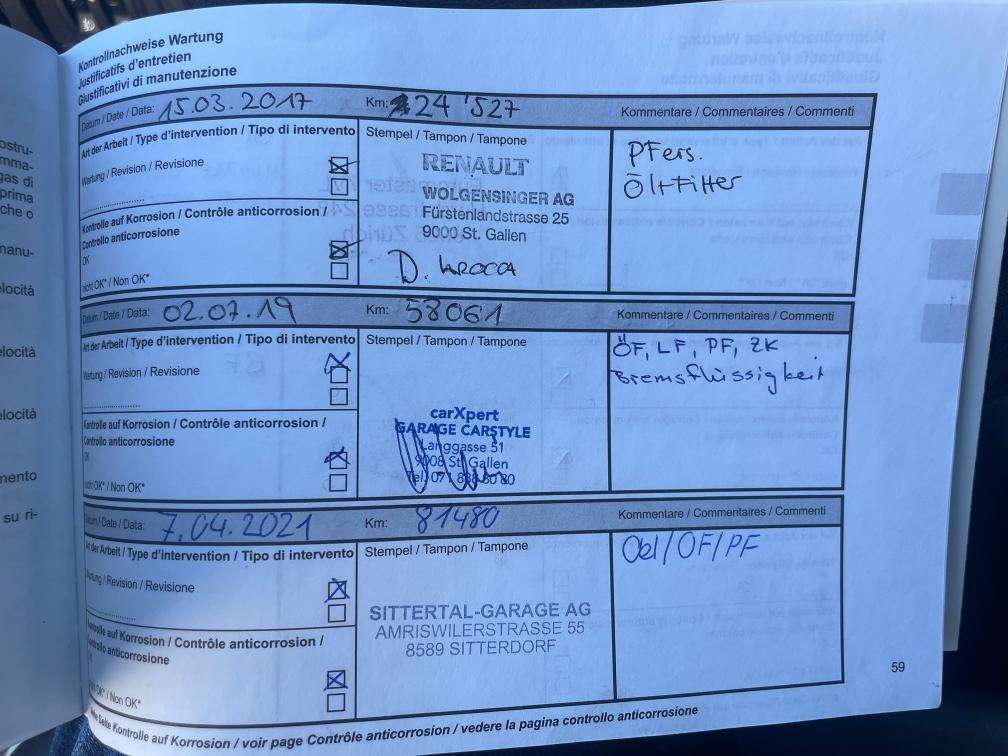 Kontrollnachweise Wartung
Justificatifs d'entretien
Giustificativi di manutenzione
Datum / Date / Data: 15.03.2017 Km: 24'527 Kommentare / Commentaires / Commenti
Art der Arbeit / Type d'intervention / Tipo di intervento
Wartung / Revision / Revisione
Kontrolle auf Korrosion / Contrôle anticorrosion /
Controllo anticorrosione
OK
nicht OK* / Non OK*
Stempel / Tampon / Tampone
RENAULT
WOLGENSINGER AG
Fürstenlandstrasse 25
9000 St. Gallen
D. LAROCCA
PFers.
Öl+Filter
Datum / Date / Data: 02.07.19 Km: 58061 Kommentare / Commentaires / Commenti
Art der Arbeit / Type d'intervention / Tipo di intervento
Wartung / Revision / Revisione
Kontrolle auf Korrosion / Contrôle anticorrosion /
Controllo anticorrosione
OK
nicht OK* / Non OK*
Stempel / Tampon / Tampone
carXpert
GARAGE CARSTYLE
Langgasse 51
9008 St. Gallen
ÖF, LF, PF, ZK
Bremsflüssigkeit
Datum / Date / Data: 7.04.2021 Km: 81480 Kommentare / Commentaires / Commenti
Art der Arbeit / Type d'intervention / Tipo di intervento
Wartung / Revision / Revisione
Kontrolle auf Korrosion / Contrôle anticorrosion /
Controllo anticorrosione
OK* / Non OK*
Stempel / Tampon / Tampone
SITTERTAL-GARAGE AG
AMRISWILERSTRASSE 55
8589 SITTERDORF
Oel/ÖF/PF
Seite Kontrolle auf Korrosion / voir page Contrôle anticorrosion / vedere la pagina controllo anticorrosione
59